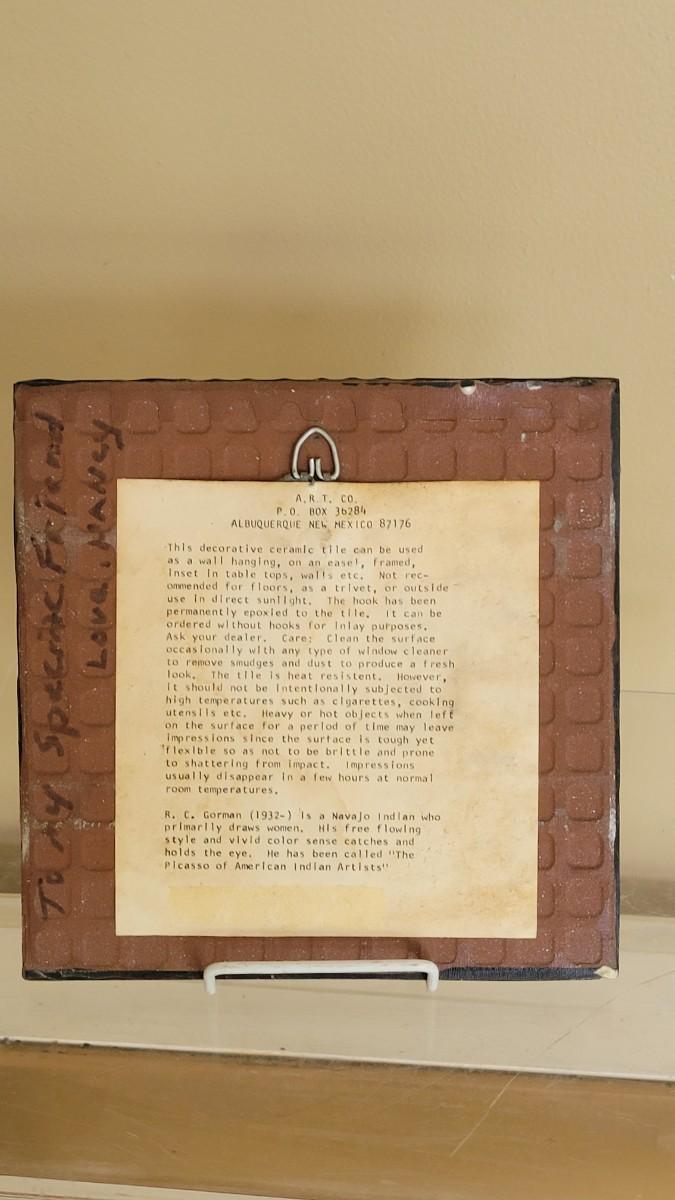 A.R.T. CO.
P.O. BOX 36284
ALBUQUERQUE NEW MEXICO 87176
This decorative ceramic tile can be used
as a wall hanging, on an easel, framed,
inset in table tops, walls etc. Not rec-
ommended for floors, as a trivet, or outside
use in direct sunlight. The hook has been
permanently epoxied to the tile. It can be
ordered without hooks for inlay purposes.
Ask your dealer. Care: Clean the surface
occasionally with any type of window cleaner
to remove smudges and dust to produce a fresh
look. The tile is heat resistent. However,
it should not be intentionally subjected to
high temperatures such as cigarettes, cooking
utensils etc. Heavy or hot objects when left
on the surface for a period of time may leave
impressions since the surface is tough yet
flexible so as not to be brittle and prone
to shattering from impact. Impressions
usually disappear in a few hours at normal
room temperatures.
R. C. Gorman (1932-) is a Navajo Indian who
primarily draws women. His free flowing
style and vivid color sense catches and
holds the eye. He has been called "The
Picasso of American Indian Artists"
To My Special Friend
Love, Nancy